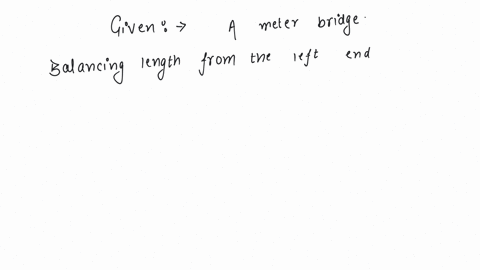 Given :→ A meter bridge.
Balancing length from the left end